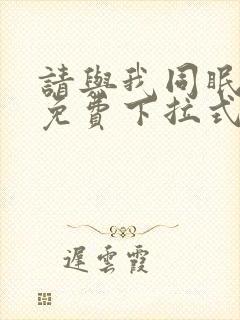 請與我同眠
免費下拉式
遲雲霞